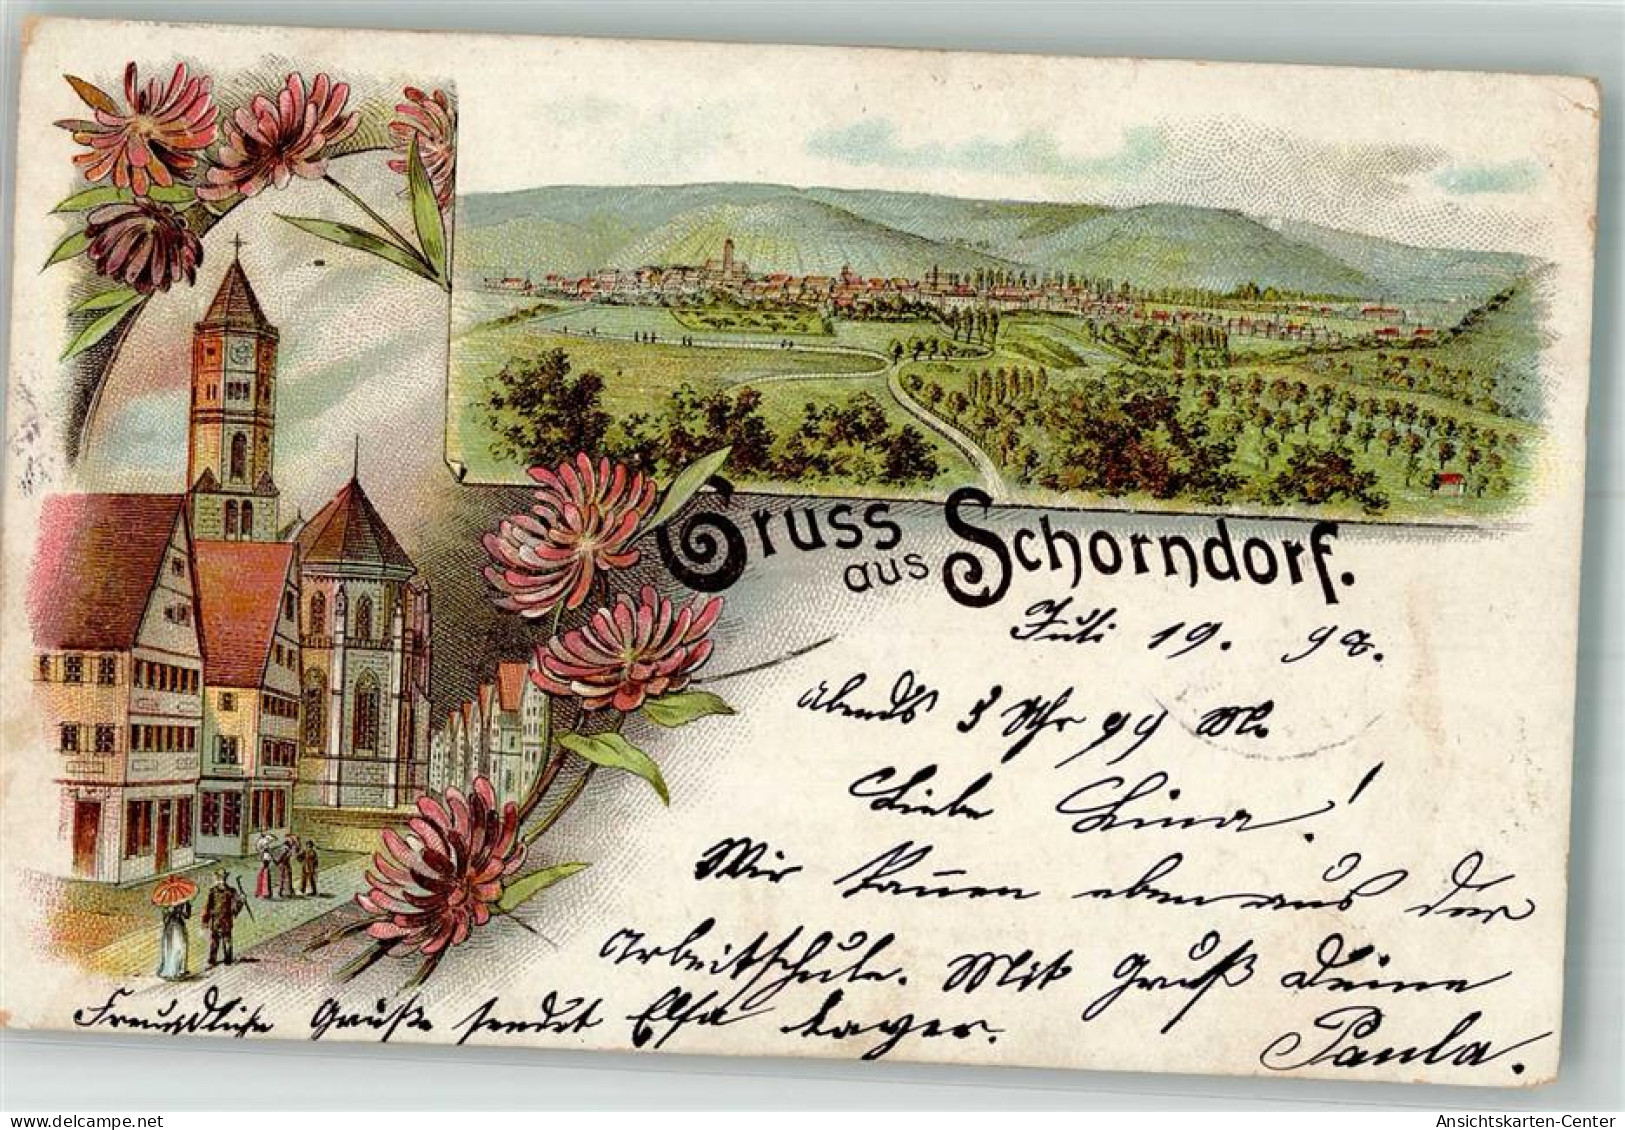 Gruss
aus Schorndorf.
Juli 19. 99.
abends 3 Uhr 99 M.
Liebe Lina!
Wir kamen eben aus der
Arbeitschule. Mit Gruß Deine
Freundliche Grüße sendet Elsa Layer.
Paula.
Ansichtskarten-Center